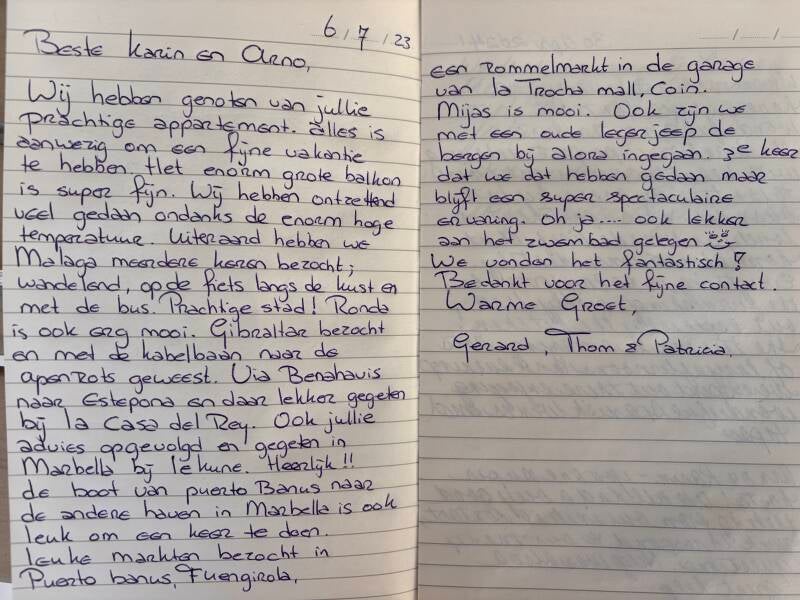 6/7/23
Beste Karin en Arno,
Wij hebben genoten van jullie
prachtige appartement. alles is
aanwezig om een fijne vakantie
te hebben. Het enorm grote balkon
is super fijn. Wij hebben ontzettend
veel gedaan ondanks de enorm hoge
temperatuur. Uiteraard hebben we
Malaga meerdere keren bezocht;
wandelend, op de fiets langs de kust en
met de bus. Prachtige stad! Ronda
is ook erg mooi. Gibraltar bezocht
en met de kabelbaan naar de
apenrots geweest. Via Benahavis
naar Estepona en daar lekker gegeten
bij la Casa del Rey. Ook jullie
advies opgevolgd en gegeten in
Marbella bij lekune. Heerlijk!!
de boot van puerto Banus naar
de andere haven in Marbella is ook
leuk om een keer te doen.
leuke markten bezocht in
Puerto banus, Fuengirola,
een rommelmarkt in de garage
van la Trocha mall, Coin.
Mijas is mooi. Ook zijn we
met een oude legerjeep de
bergen bij alora ingegaan. 3e keer
dat we dat hebben gedaan maar
blijft een super spectaculaire
ervaring. Oh ja.... ook lekker
aan het zwembad gelegen
We vonden het fantastisch!
Bedankt voor het fijne contact.
Warme Groet,
Gerard, Thom & Patricia.